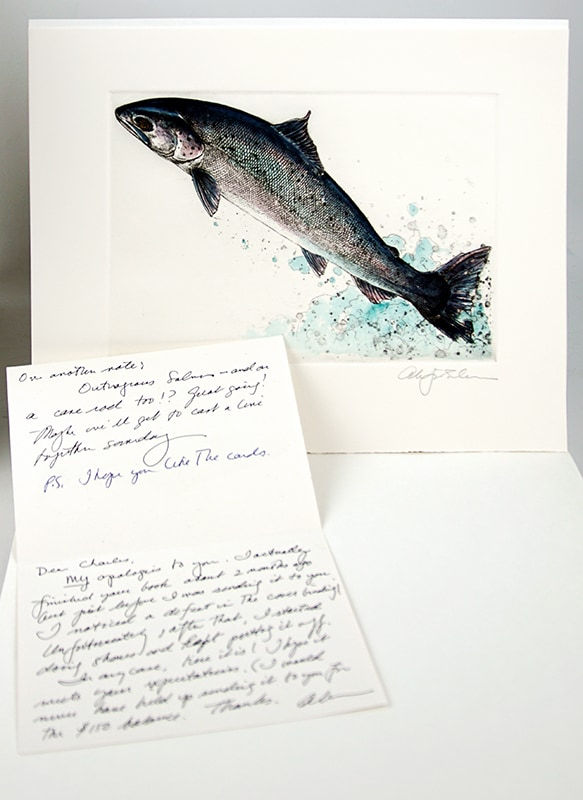 On another note:
Outrageous Salmon — and on
a cane rod too!? Great going!
Maybe we'll get to cast a line
together someday
P.S. I hope you like The cards.
Dear Charles,
My apologies to you. I actually
finished your book about 2 months ago
but just before I was sending it to you
I noticed a defect in The cover binding!
Unfortunately, after That, I started
doing shows and kept putting it off.
In any case, here it is! I hope it
meets your expectations. (I would
never have held up sending it to you for
The $150 balance. Thanks.